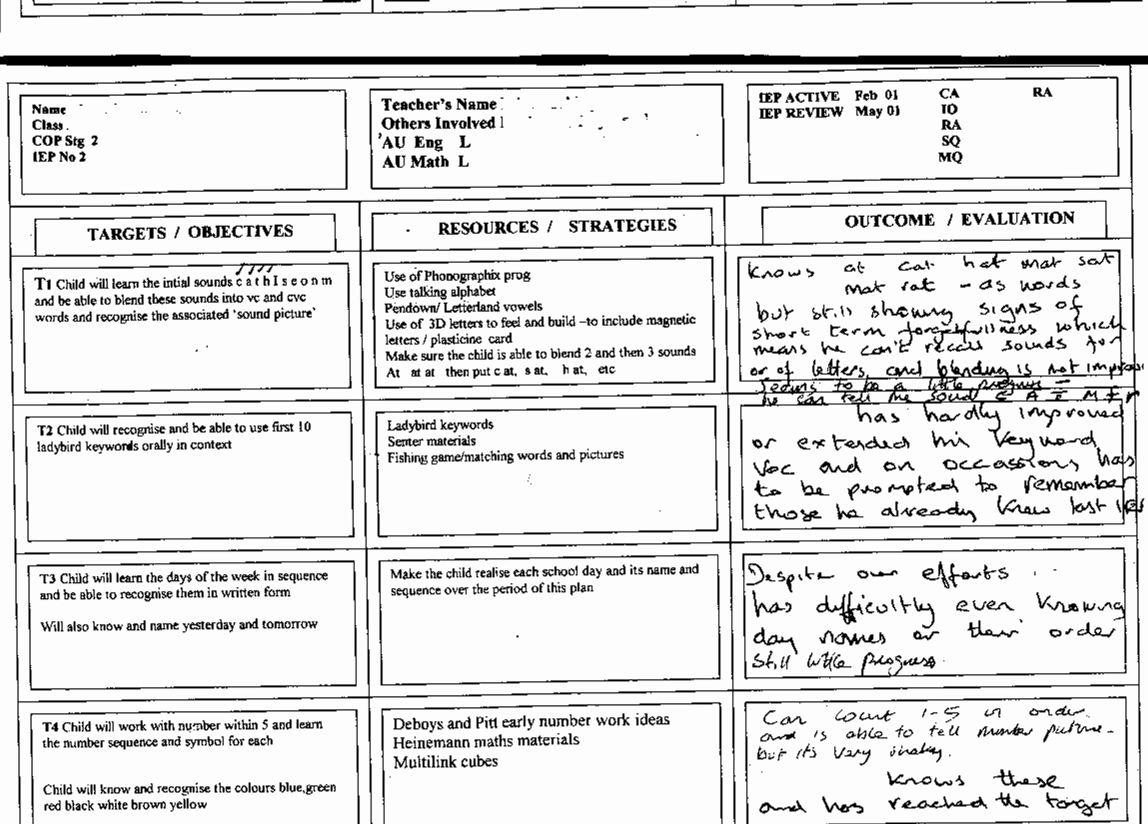 Name
Class.
COP Stg 2
IEP No 2
Teacher's Name
Others Involved
AU Eng L
AU Math L
IEP ACTIVE Feb 01 CA RA
IEP REVIEW May 01 IO
RA
SQ
MQ
TARGETS / OBJECTIVES
RESOURCES / STRATEGIES
OUTCOME / EVALUATION
T1 Child will learn the intial sounds c a t h I s e o n m
and be able to blend these sounds into vc and cvc
words and recognise the associated 'sound picture'
Use of Phonographix prog
Use talking alphabet
Pendown/ Letterland vowels
Use of 3D letters to feel and build –to include magnetic
letters / plasticine card
Make sure the child is able to blend 2 and then 3 sounds
At at at then put c at, s at, h at, etc
Knows at cat hat mat sat
mat rat - as words
but still showing signs of
short term forgetfullness which
means he can't recall sounds for
or of letters, and blending is not improv
seems to be a little progress -
he can tell me sound C A I M t r
T2 Child will recognise and be able to use first 10
ladybird keywords orally in context
Ladybird keywords
Semer materials
Fishing game/matching words and pictures
has hardly improved
or extended his keyword
voc and on occassions has
to be prompted to remember
those he already knew last
T3 Child will learn the days of the week in sequence
and be able to recognise them in written form
Will also know and name yesterday and tomorrow
Make the child realise each school day and its name and
sequence over the period of this plan
Despite our efforts
has difficultly even knowing
day names or their order
still little progress.
T4 Child will work with number within 5 and learn
the number sequence and symbol for each
Child will know and recognise the colours blue,green
red black white brown yellow
Deboys and Pitt early number work ideas
Heinemann maths materials
Multilink cubes
Can count 1-5 in order.
and is able to tell number picture-
but its very shakey.
Knows these
and has reached the target